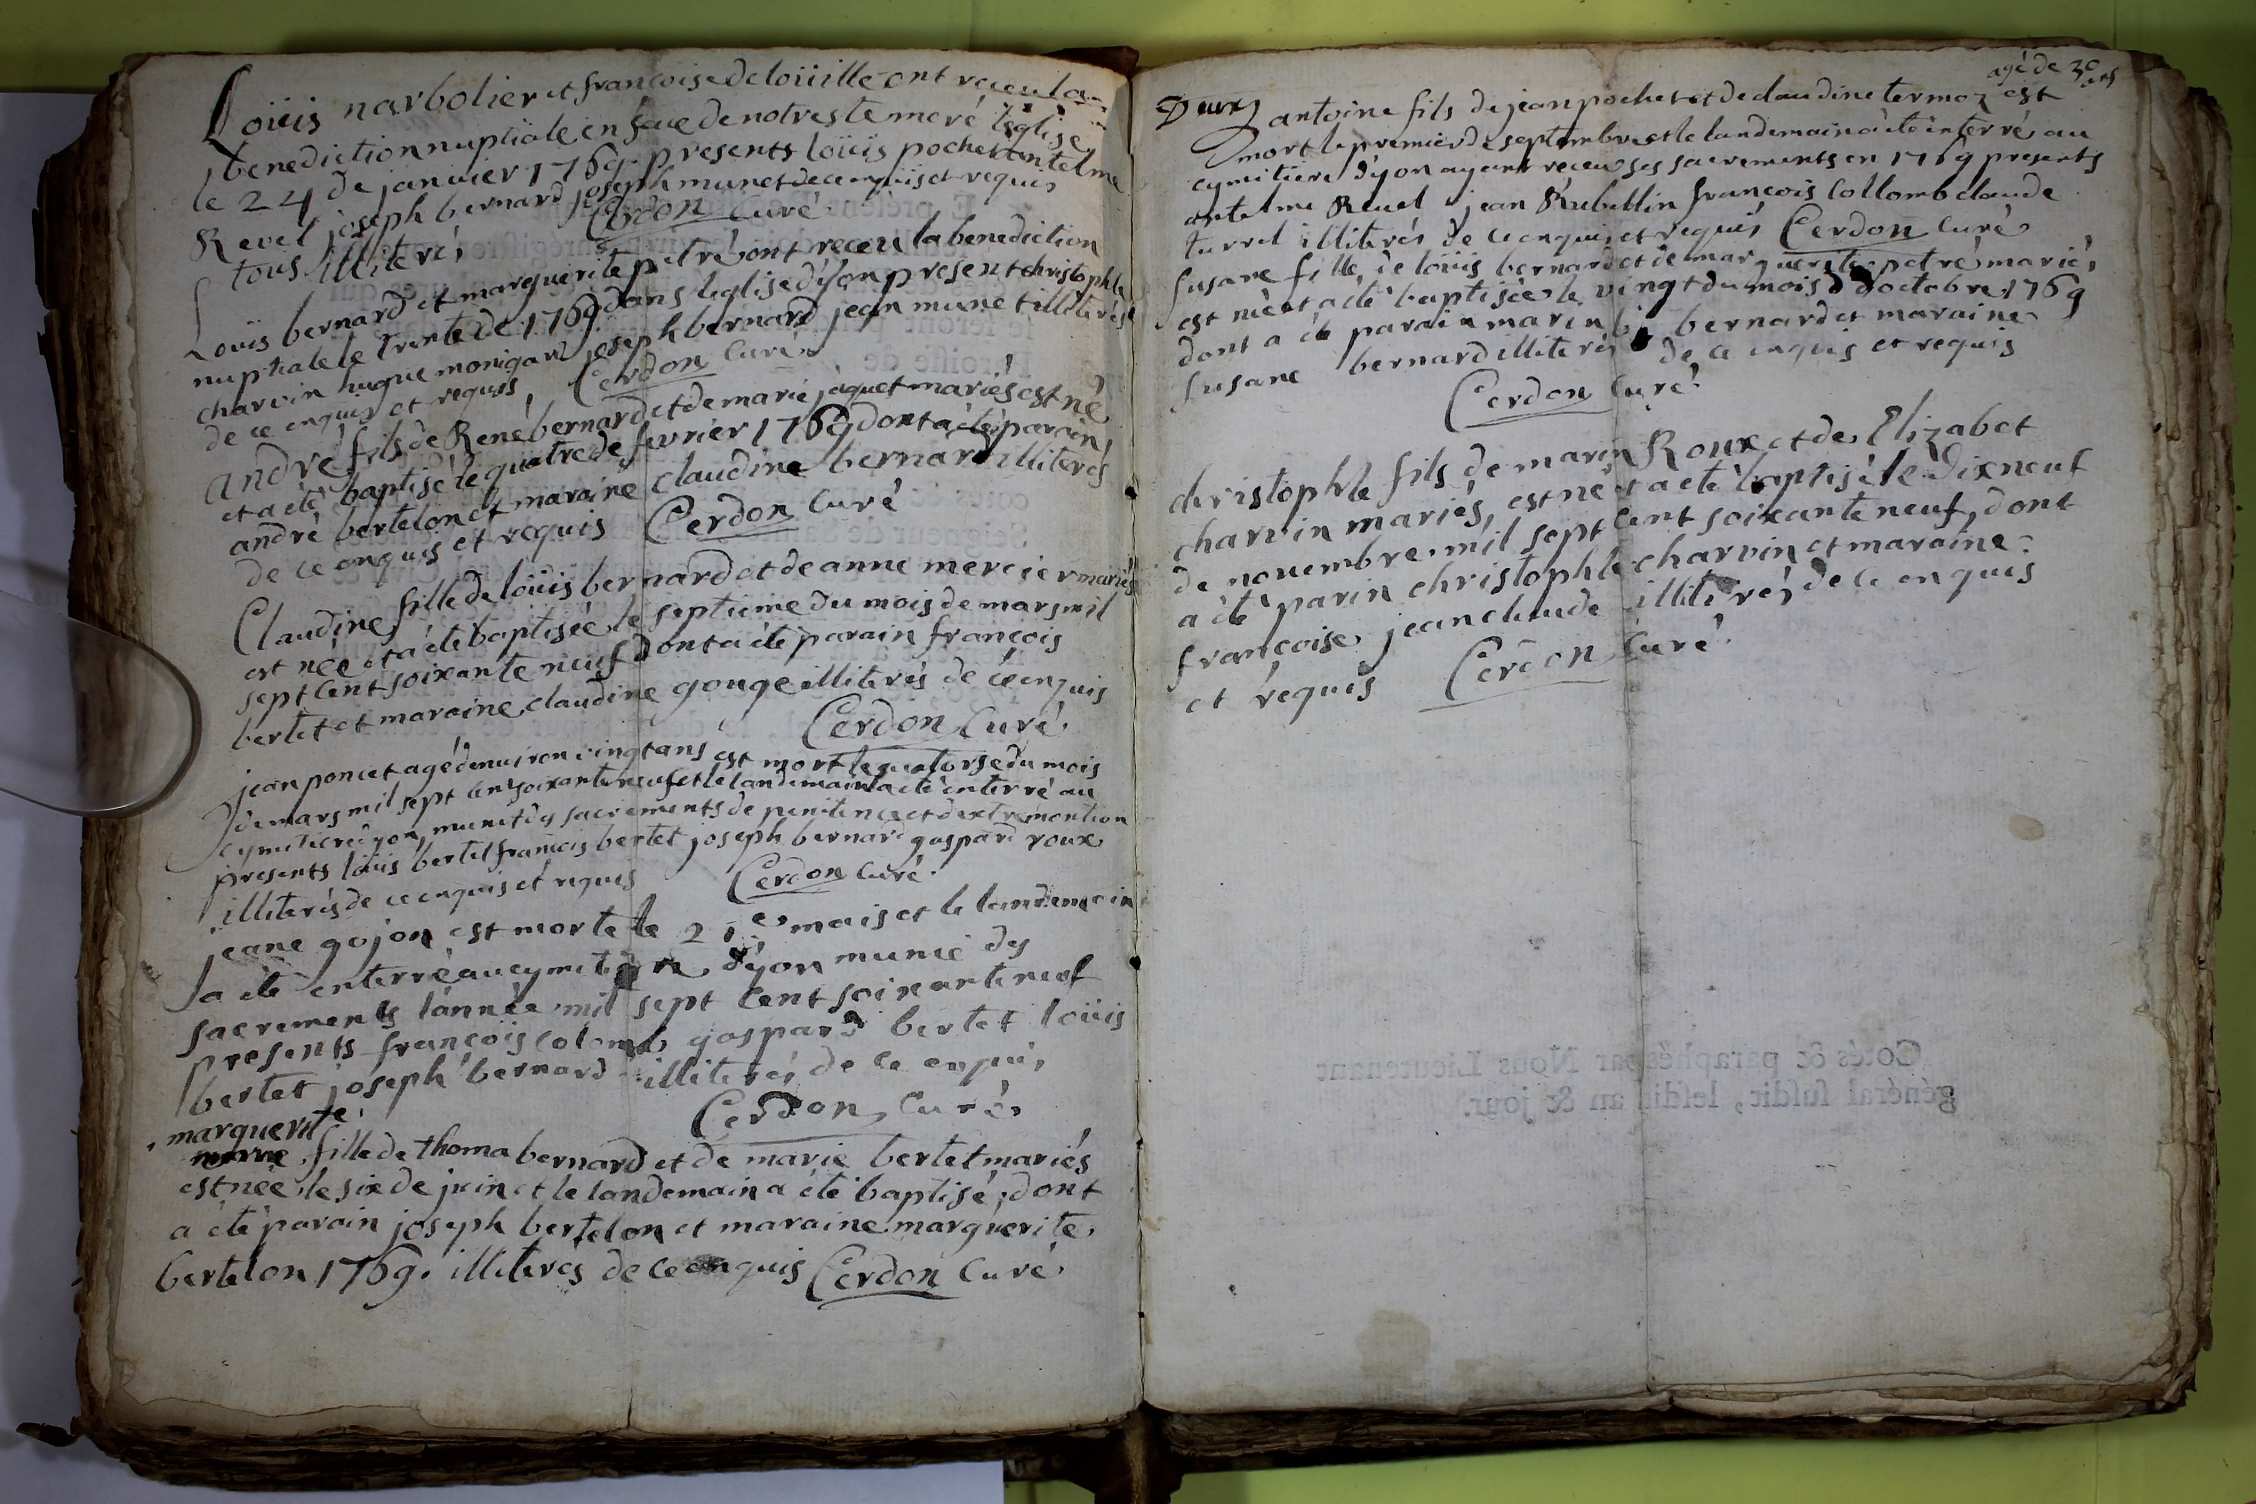 Loüis narbolier et francoise deloüille ont receu la
benediction nuptiale en face de notre ste mere l'eglise
le 24 de janvier 1769. presents loüis pochet antelme
Revel joseph bernard joseph munet de ce enquis et requis
tous illiterés Cerdon Curé
Louis bernard et marguerite petré ont receu la benediction
nuptiale le trente de 1769 dans leglise d'yon present christophle
charvin hugue monigard joseph bernard jean munet illiterés
de ce enquis et requis, Cerdon Curé
andré fils de René bernard et de marie jaquet mariés est né
et a eté baptisé le quatre de fevrier 1769 dont a été parain
andré bertelon et maraine claudine bernard illiterés
de ce enquis et requis Cerdon Curé
Claudine fille de loüis bernard et de anne mercier mariés
est née et a été baptisée le septieme du mois de mars mil
sept cent soixante neuf dont a été parain françois
bertet et maraine claudine gouge illiterés de ce enquis
Cerdon Curé
jean poncet agé denviron vingt ans est mort le quatorse du mois
de mars mil sept cent soixante neuf et le landemain a eté enterré au
cymitiere d'yon, munet des sacrements de penitence et dextremontion
presents loüis bertet francois bertet joseph bernard gaspard roux
illiterés de ce enquis et requis Cerdon Curé
jeane gojon est morte le 2 mais et le landemain
a été enterré au cymitiere d'yon munie des
sacrements l'année mil sept cent soixante neuf
presents françois colomb gaspard bertet loüis
bertet joseph bernard illiterés de ce enquis
Cerdon Curé
marguerite
marie fille de thoma bernard et de marie bertet mariés
est née le six de juin et le landemain a été baptisé, dont
a été parain joseph bertelon et maraine marguerite
bertelon 1769. illiterés de ce enquis Cerdon Curé
agé de 30 ans
antoine fils de jean pochet et de claudine termoz est
mort le premier de septembre et le landemain a été enterré au
cymitiere d'yon ayant receu ses sacrements en 1769 presents
antelme Revel jean Rubellin françois Collomb claude
turrel illiterés de ce enquis et requis Cerdon Curé
susane fille de loüis bernard et de marguerite petré mariés
est née et a été baptisée le vingt du mois d'octobre 1769
dont a été parain marin bernard et maraine
susane bernard illiterés de ce enquis et requis
Cerdon Curé
christophle fils de marin Roux et de Elizabet
charvin mariés, est né et a eté baptisé le dixneuf
de novembre mil sept cent soixante neuf, dont
a été parin christophle charvin et maraine
françoise jeanclaude illiterés de ce enquis
et requis Cerdon Curé
Cotés & paraphés par Nous Lieutenant
général susdit, lesdits an & jour.